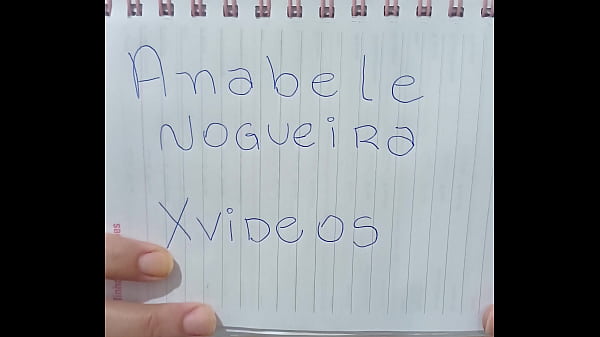 Anabele
NOGUeiRa
XViDeOS